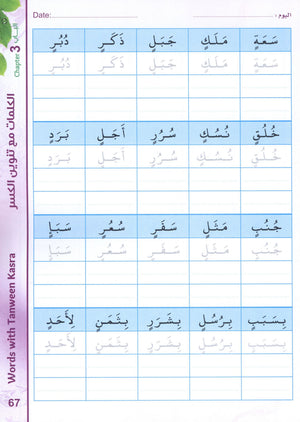 Date: اليوم:
Chapter 3 الباب
الكلمات مع تنوين الكسر
Words with Tanween Kasra
سَعَةٍ مَلَكٍ جَبَلٍ ذَكَرٍ دُبُرٍ
سَعَةٍ مَلَكٍ جَبَلٍ ذَكَرٍ دُبُرٍ
خُلُقٍ نُسُكٍ سُرُرٍ أَجَلٍ بَرَدٍ
خُلُقٍ نُسُكٍ سُرُرٍ أَجَلٍ بَرَدٍ
جُنُبٍ مَثَلٍ سَفَرٍ سُعُرٍ سَبَإٍ
جُنُبٍ مَثَلٍ سَفَرٍ سُعُرٍ سَبَإٍ
بِسَبَبٍ بِرُسُلٍ بِشَرَرٍ بِثَمَنٍ لِأَحَدٍ
بِسَبَبٍ بِرُسُلٍ بِشَرَرٍ بِثَمَنٍ لِأَحَدٍ
67